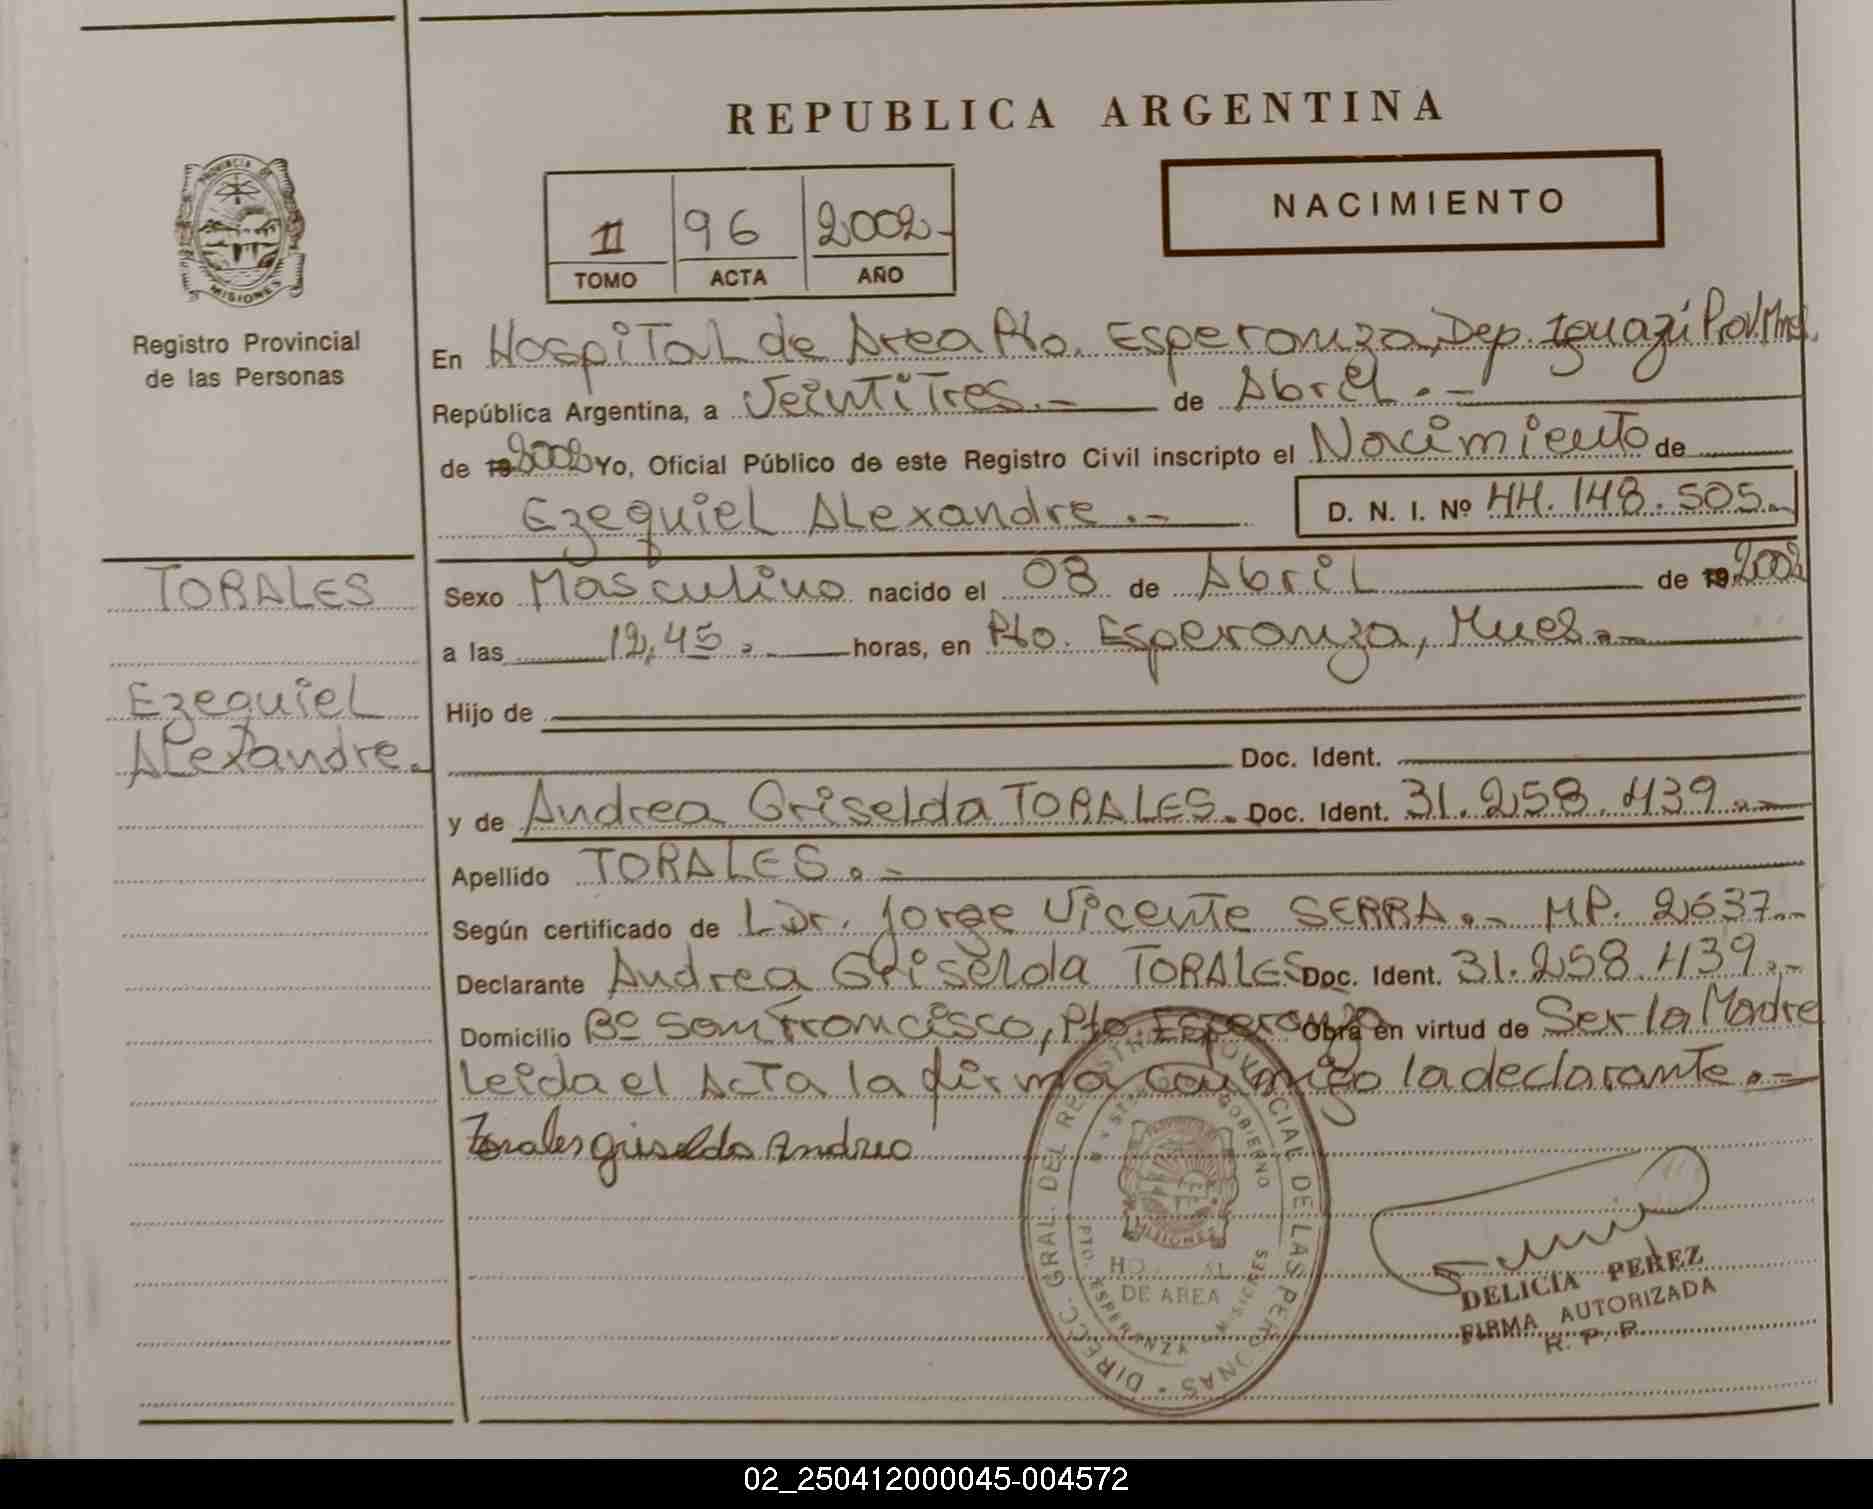 REPUBLICA ARGENTINA
NACIMIENTO
II 96 2002-
TOMO ACTA AÑO
PROVINCIA DE
MISIONES
Registro Provincial
de las Personas
En Hospital de Area Pto. Esperanza, Dep. Iguazú Prov. Mnes.
República Argentina, a Veintitres.- de Abril.-
de 19 2002 Yo, Oficial Público de este Registro Civil inscripto el Nacimiento de
Ezequiel Alexandre.- D. N. I. Nº 44.148.505.-
TORALES
Ezequiel
Alexandre.
Sexo Masculino nacido el 08 de Abril de 19 2002
a las 12,45.- horas, en Pto. Esperanza, Mnes.-
Hijo de
Doc. Ident.
y de Andrea Griselda TORALES. Doc. Ident. 31.258.439.-
Apellido TORALES.-
Según certificado de Dr. Jorge Vicente SERRA.- MP. 2637.-
Declarante Andrea Griselda TORALES Doc. Ident. 31.258.439.-
Domicilio Bº San Francisco, Pto. Esperanza Obra en virtud de Ser la Madre
Leida el Acta la firma conmigo la declarante.-
Torales Griselda Andrea
DIRECC. GRAL. DEL REGISTRO PROVINCIAL DE LAS PERSONAS
GOBIERNO
MISIONES
DE AREA
PTO. ESPERANZA MISIONES
DELICIA PEREZ
FIRMA AUTORIZADA
R. P. P.
02_250412000045-004572